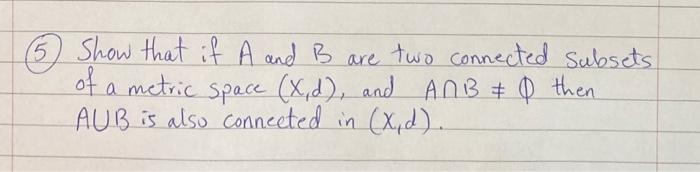 ⑤ Show that if A and B are two connected subsets
of a metric space (X,d), and A∩B ≠ Φ then
A∪B is also connected in (X,d).